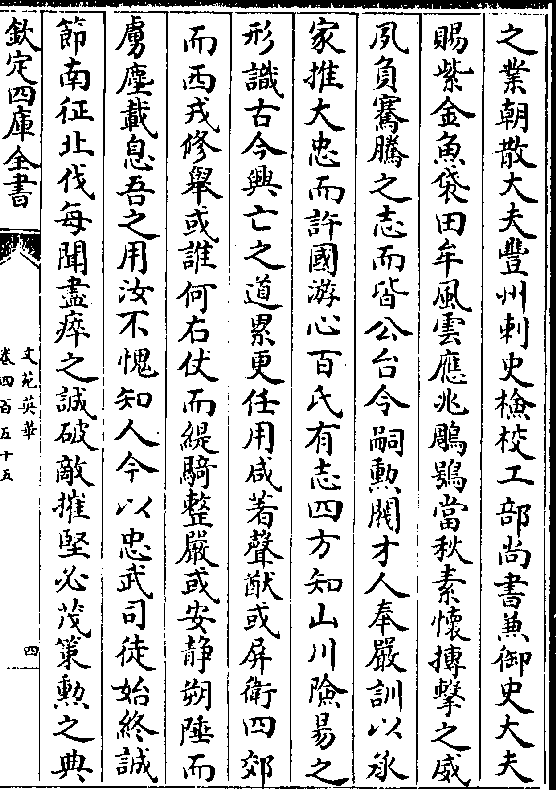 之業朝散大夫豐州刺史檢校工部尚書兼御史大夫
賜紫金魚袋田牟風雲應兆鵰鶚當秋素懷搏擊之威
夙負騫騰之志而皆公台令嗣勲閥才人奉嚴訓以承
家推大忠而許國游心百氏有志四方知山川險易之
形識古今興亡之道累更任用咸著聲猷或屏衛四郊
而西戎修舉或誰何右仗而緹騎整嚴或安靜朔陲而
虜塵載息吾之用汝不愧知人今以忠武司徒始終誠
節南征北伐每聞盡瘁之誠破敵摧堅必茂策勲之典
欽定四庫全書
文苑英華
卷四百五十五
四